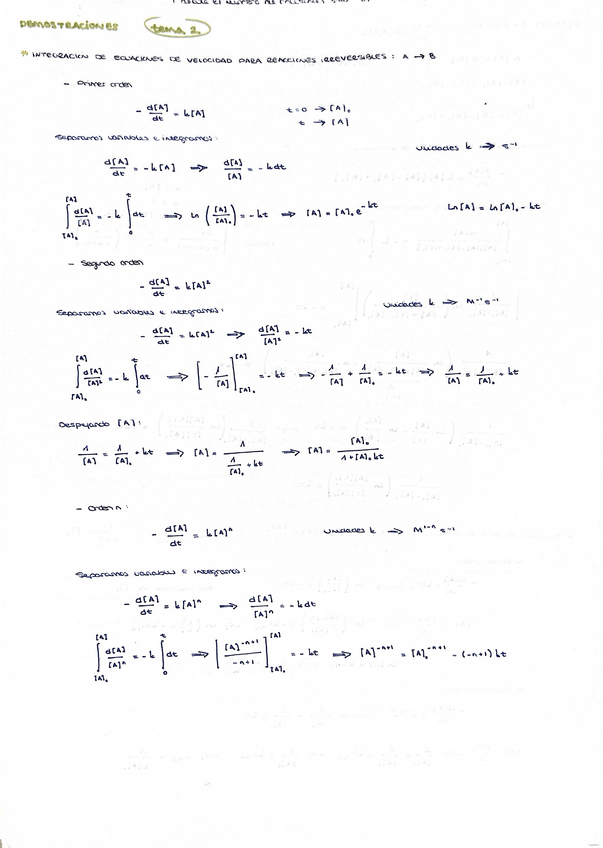 DEMOSTRACIONES tema 2.
* INTEGRACION DE ECUACIONES DE VELOCIDAD PARA REACCIONES IRREVERSIBLES : A → B
- Primer orden
- d[A]/dt = k[A] t=0 → [A]₀
t → [A]
Separamos variables e integramos: Unidades k → s⁻¹
d[A]/dt = -k[A] ⇒ d[A]/[A] = -kdt
∫_{[A]₀}^{[A]} d[A]/[A] = -k ∫_0^t dt ⇒ Ln ([A]/[A]₀) = -kt ⇒ [A] = [A]₀ e^{-kt} Ln[A] = Ln[A]₀ - kt
- Segundo orden
- d[A]/dt = k[A]²
Separamos variables e integramos: Unidades k → M⁻¹s⁻¹
- d[A]/dt = k[A]² ⇒ d[A]/[A]² = -kt
∫_{[A]₀}^{[A]} d[A]/[A]² = -k ∫_0^t dt ⇒ [-1/[A]]_{[A]₀}^{[A]} = -kt ⇒ -1/[A] + 1/[A]₀ = -kt ⇒ 1/[A] = 1/[A]₀ + kt
Despejando [A]:
1/[A] = 1/[A]₀ + kt ⇒ [A] = 1/(1/[A]₀ + kt) ⇒ [A] = [A]₀/(1+[A]₀kt)
- Orden n:
- d[A]/dt = k[A]ⁿ Unidades k → M¹⁻ⁿ s⁻¹
Separamos variables e integramos:
- d[A]/dt = k[A]ⁿ ⇒ d[A]/[A]ⁿ = -kdt
∫_{[A]₀}^{[A]} d[A]/[A]ⁿ = -k ∫_0^t dt ⇒ [[A]^{-n+1}/(-n+1)]_{[A]₀}^{[A]} = -kt ⇒ [A]^{-n+1} = [A]₀^{-n+1} - (-n+1)kt